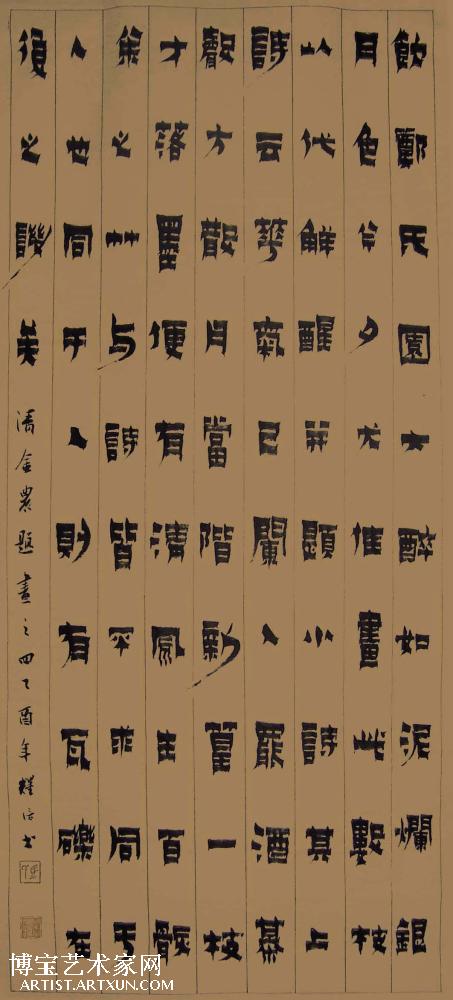 飲鄭氏園大醉如泥爛銀
月色夕尤佳畫此數枝
以代解酲并題小詩其上
詩云華氣已闌人罷酒
鼓方散月當階新篁一枝
才落墨便有清風生百骸
余之竹与詩皆不求同于
人也同乎人則有瓦礫在
後之譏矣
清金農題畫之四乙酉年耀書
博宝艺术家网
ARTIST.ARTXUN.COM